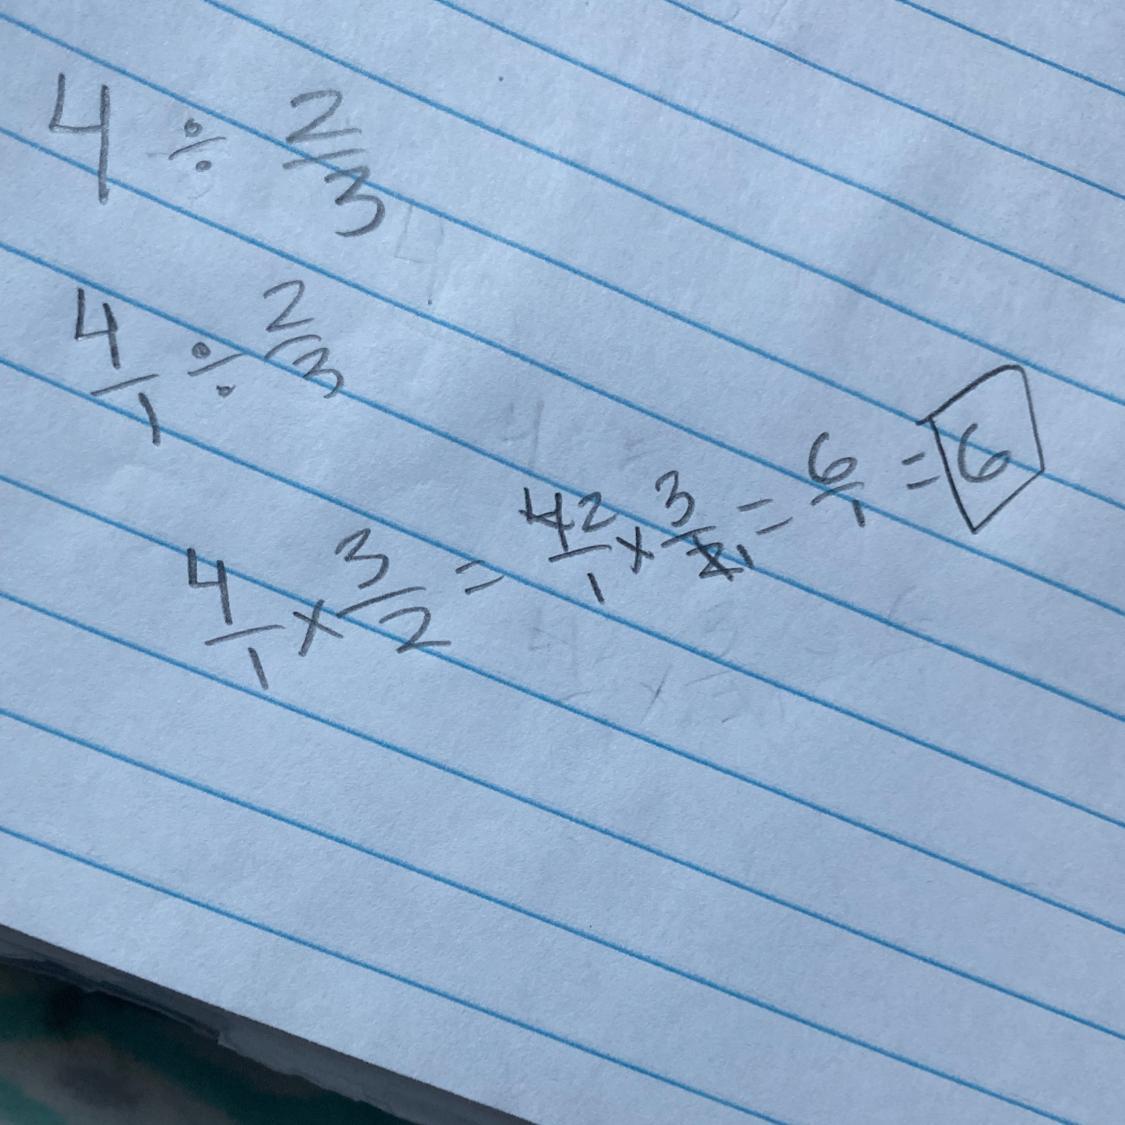 4 ÷ 2/3
4/1 ÷ 2/3
4/1 × 3/2 = 4̶ 2/1 × 3/2̶ 1 = 6/1 = 6